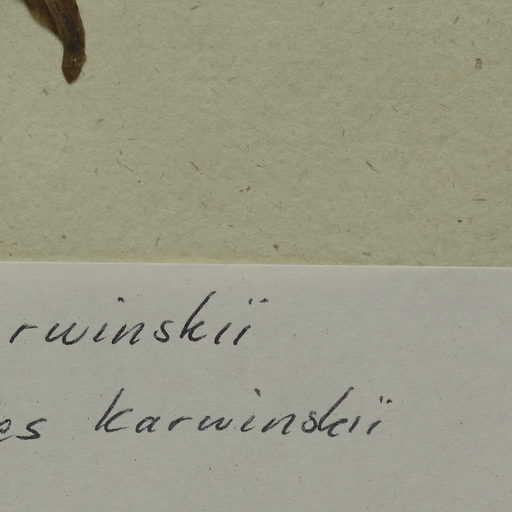 rwinskii
es karwinskii